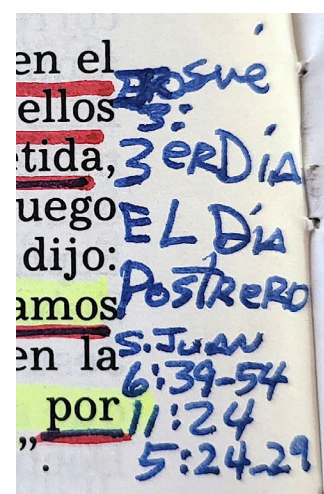 en el
ellos
tida,
uego
dijo:
amos
en la
por
”.
Josué
3:
3 erDía
EL Día
PostReRO
S. JUAN
6:39-54
11:24
5:24-29